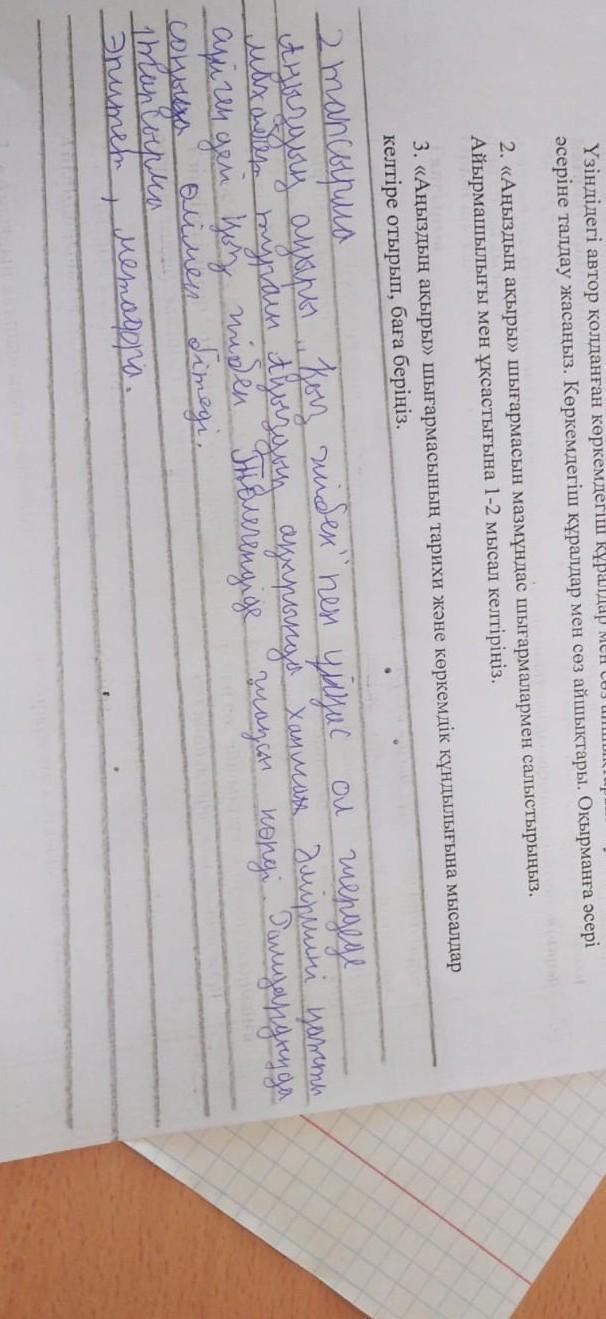 Үзіндідегі автор қолданған көркемдегіш құралдар мен сөз
әсеріне талдау жасаңыз. Көркемдегіш құралдар мен сөз айшықтары. Оқырманға әсері
2. «Аңыздың ақыры» шығармасын мазмұндас шығармалармен салыстырыңыз.
Айырмашылығы мен ұқсастығына 1-2 мысал келтіріңіз.
3. «Аңыздың ақыры» шығармасының тарихи және көркемдік құндылығына мысалдар
келтіре отырып, баға беріңіз.
2 тапсырма
Аңыздың ақыры „Қыз жібек" пен ұқсас ол жерде
махаббат тұрған Аңыздың ақырында ханмен Әміршіні қатты
сүйгендей қыз жібек Төлегенді де жақсы көрді.
соңында өліммен бітеді.
1 тапсырма
Эпитет, метафора.